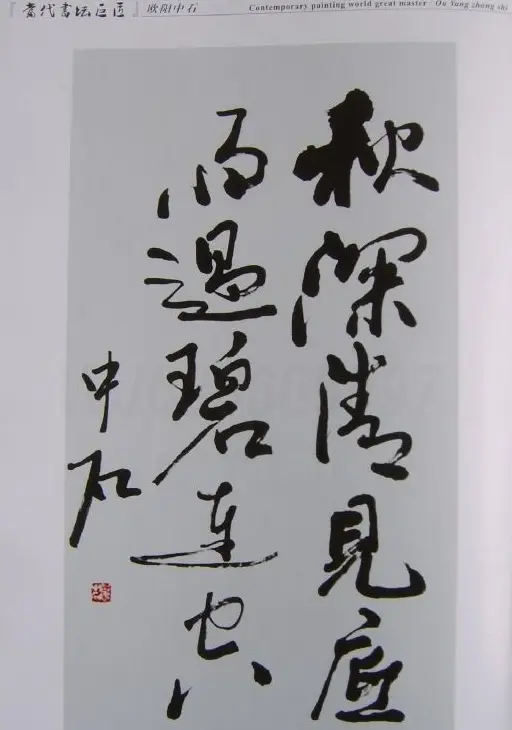 『當代書坛巨匠』欧阳中石
Contemporary painting world great master / Ou Yang zhong shi
秋深清見底
雨過碧連空
中石